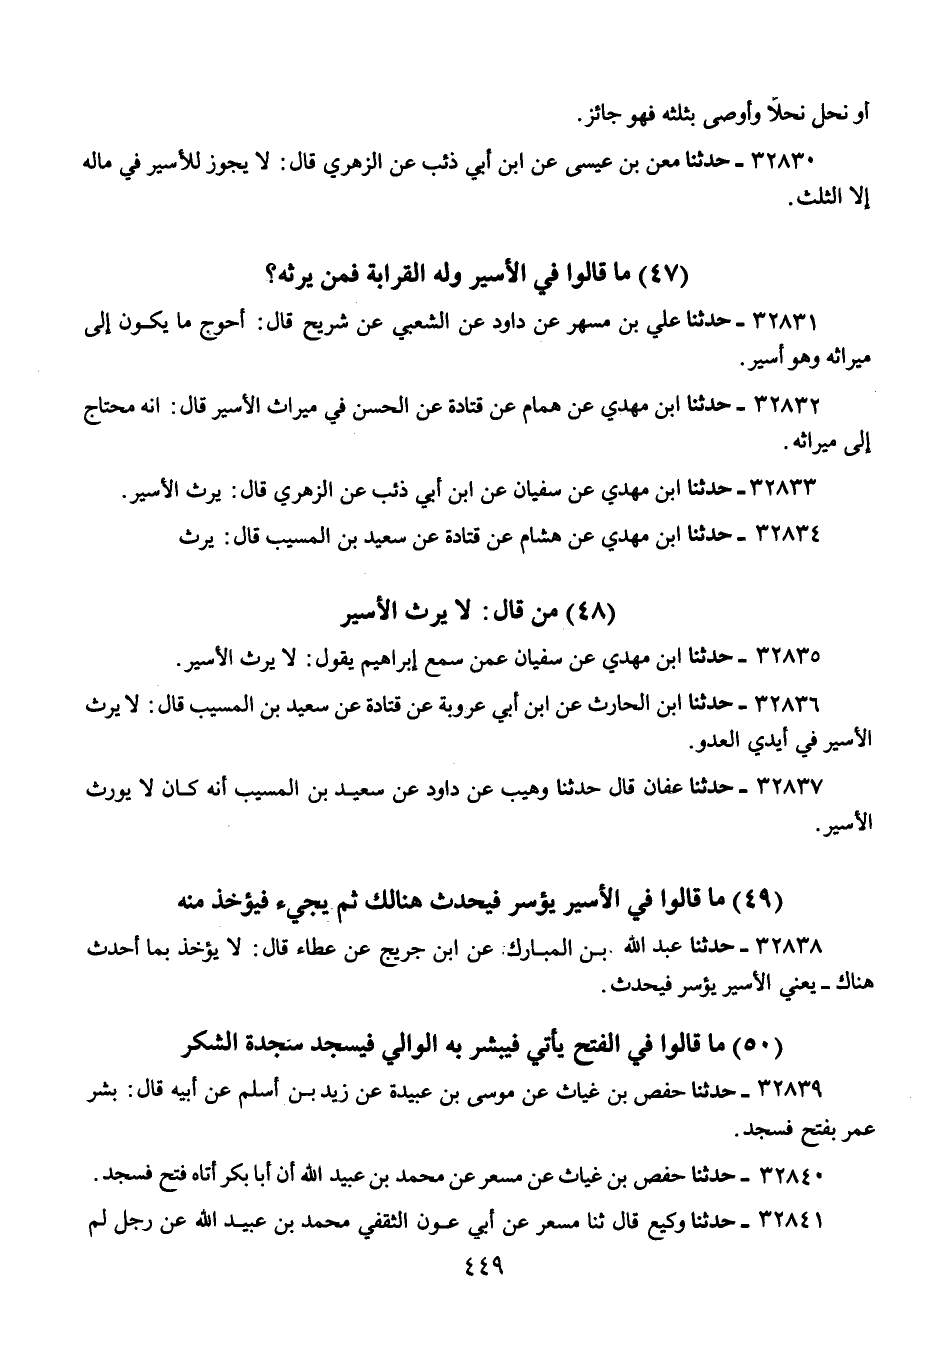 أو نحل نحلاً وأوصى بثلثه فهو جائز.
٣٢٨٣٠ ـ حدثنا معن بن عيسى عن ابن أبي ذئب عن الزهري قال: لا يجوز للأسير في ماله
إلا الثلث.
(٤٧) ما قالوا في الأسير وله القرابة فمن يرثه؟
٣٢٨٣١ ـ حدثنا علي بن مسهر عن داود عن الشعبي عن شريح قال: أحوج ما يكون إلى
ميراثه وهو أسير.
٣٢٨٣٢ ـ حدثنا ابن مهدي عن همام عن قتادة عن الحسن في ميراث الأسير قال: انه محتاج
إلى ميراثه.
٣٢٨٣٣ ـ حدثنا ابن مهدي عن سفيان عن ابن أبي ذئب عن الزهري قال: يرث الأسير.
٣٢٨٣٤ ـ حدثنا ابن مهدي عن هشام عن قتادة عن سعيد بن المسيب قال: يرث
(٤٨) من قال: لا يرث الأسير
٣٢٨٣٥ ـ حدثنا ابن مهدي عن سفيان عمن سمع إبراهيم يقول: لا يرث الأسير.
٣٢٨٣٦ ـ حدثنا ابن الحارث عن ابن أبي عروبة عن قتادة عن سعيد بن المسيب قال: لا يرث
الأسير في أيدي العدو.
٣٢٨٣٧ ـ حدثنا عفان قال حدثنا وهيب عن داود عن سعيد بن المسيب أنه كان لا يورث
الأسير.
(٤٩) ما قالوا في الأسير يؤسر فيحدث هنالك ثم يجيء فيؤخذ منه
٣٢٨٣٨ ـ حدثنا عبد الله بن المبارك عن ابن جريج عن عطاء قال: لا يؤخذ بما أحدث
هناك ـ يعني الأسير يؤسر فيحدث.
(٥٠) ما قالوا في الفتح يأتي فيبشر به الوالي فيسجد سجدة الشكر
٣٢٨٣٩ ـ حدثنا حفص بن غياث عن موسى بن عبيدة عن زيد بن أسلم عن أبيه قال: بشر
عمر بفتح فسجد.
٣٢٨٤٠ ـ حدثنا حفص بن غياث عن مسعر عن محمد بن عبيد الله أن أبا بكر أتاه فتح فسجد.
٣٢٨٤١ ـ حدثنا وكيع قال ثنا مسعر عن أبي عون الثقفي محمد بن عبيد الله عن رجل لم
٤٤٩